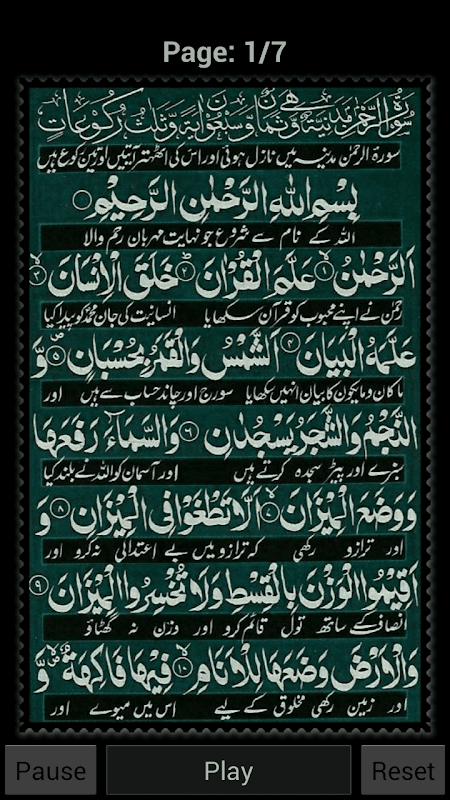 Page: 1/7
سورة الرحمن مدنية وهي ثمان وسبعون اية وثلث ركوعات
سورۃ الرحمٰن مدینہ میں نازل ہوئی اور اس کی اٹھتر آیتیں اور تین رکوع ہیں
بِسْمِ اللّٰهِ الرَّحْمٰنِ الرَّحِيْمِ
اللہ کے نام سے شروع جو نہایت مہربان رحم والا
اَلرَّحْمٰنُ ۱ عَلَّمَ الْقُرْاٰنَ ۲ خَلَقَ الْاِنْسَانَ ۳
رحمٰن نے اپنے محبوب کو قرآن سکھایا انسانیت کی جان محمد کو پیدا کیا
عَلَّمَهُ الْبَيَانَ ۴ اَلشَّمْسُ وَالْقَمَرُ بِحُسْبَانٍ ۵ وَّ
ماکان ومایکون کا بیان انہیں سکھایا سورج اور چاند حساب سے ہیں اور
النَّجْمُ وَالشَّجَرُ يَسْجُدٰنِ ۶ وَالسَّمَآءَ رَفَعَهَا
سبزے اور پیڑ سجدہ کرتے ہیں اور آسمان کو اللہ نے بلند کیا
وَوَضَعَ الْمِيْزَانَ ۷ اَلَّا تَطْغَوْا فِى الْمِيْزَانِ ۸ وَ
اور ترازو رکھی کہ ترازو میں بے اعتدالی نہ کرو اور
اَقِيْمُوا الْوَزْنَ بِالْقِسْطِ وَلَا تُخْسِرُوا الْمِيْزَانَ ۹
انصاف کے ساتھ تول قائم کرو اور وزن نہ گھٹاؤ
وَالْاَرْضَ وَضَعَهَا لِلْاَنَامِ ۱۰ فِيْهَا فَاكِهَةٌ وَّ
اور زمین رکھی مخلوق کے لیے اس میں میوے اور
Pause Play Reset